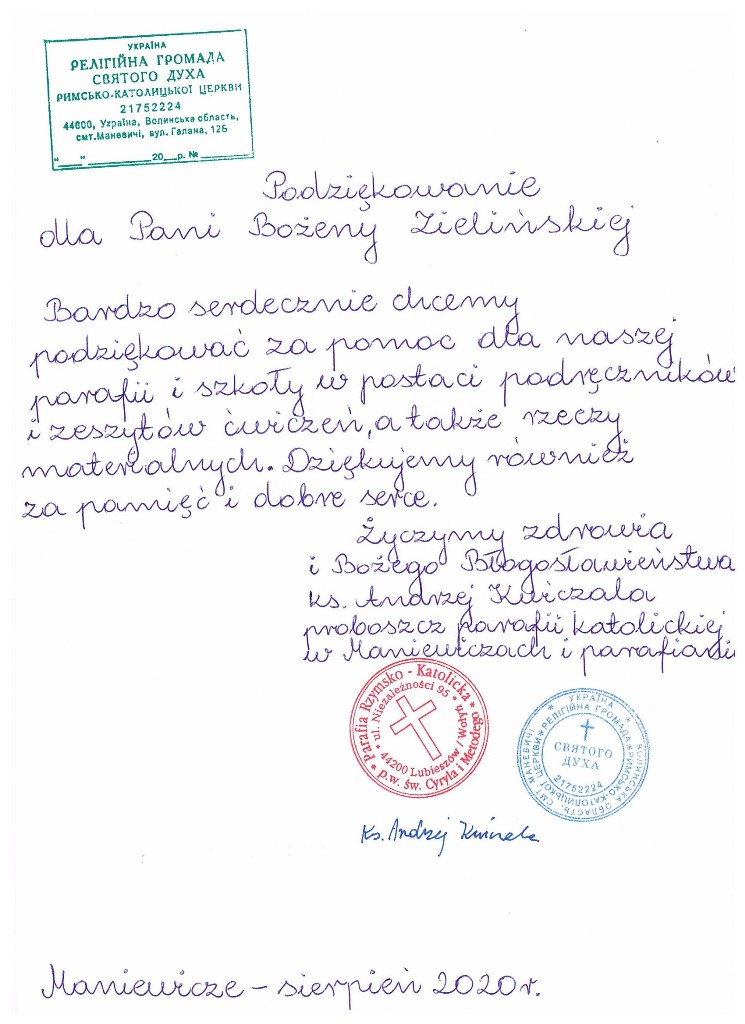 УКРАЇНА
РЕЛІГІЙНА ГРОМАДА
СВЯТОГО ДУХА
РИМСЬКО-КАТОЛИЦЬКОЇ ЦЕРКВИ
21752224
44600, Україна, Волинська область,
смт.Маневичі, вул. Галана, 12Б
"___" __________ 20__р. № ________
Podziękowanie
dla Pani Bożeny Zielińskiej
Bardzo serdecznie chcemy
podziękować za pomoc dla naszej
parafii i szkoły w postaci podręczników
i zeszytów ćwiczeń, a także rzeczy
materialnych. Dziękujemy również
za pamięć i dobre serce.
Życzymy zdrowia
i Bożego Błogosławieństwa
ks. Andrzej Kwiczala
proboszcz parafii katolickiej
w Maniewiczach i parafianie
* Parafia Rzymsko - Katolicka *
p.w. św. Cyryla i Metodego
ul. Niezależności 95 *
* 44200 Lubieszów / Wołyń
* УКРАЇНА * ВОЛИНСЬКА ОБЛАСТЬ, СМТ МАНЕВИЧІ
* РЕЛІГІЙНА ГРОМАДА * РИМСЬКО-КАТОЛИЦЬКОЇ ЦЕРКВИ
СВЯТОГО
ДУХА
21752224
Ks. Andrzej
Maniewicze – sierpień 2020 r.